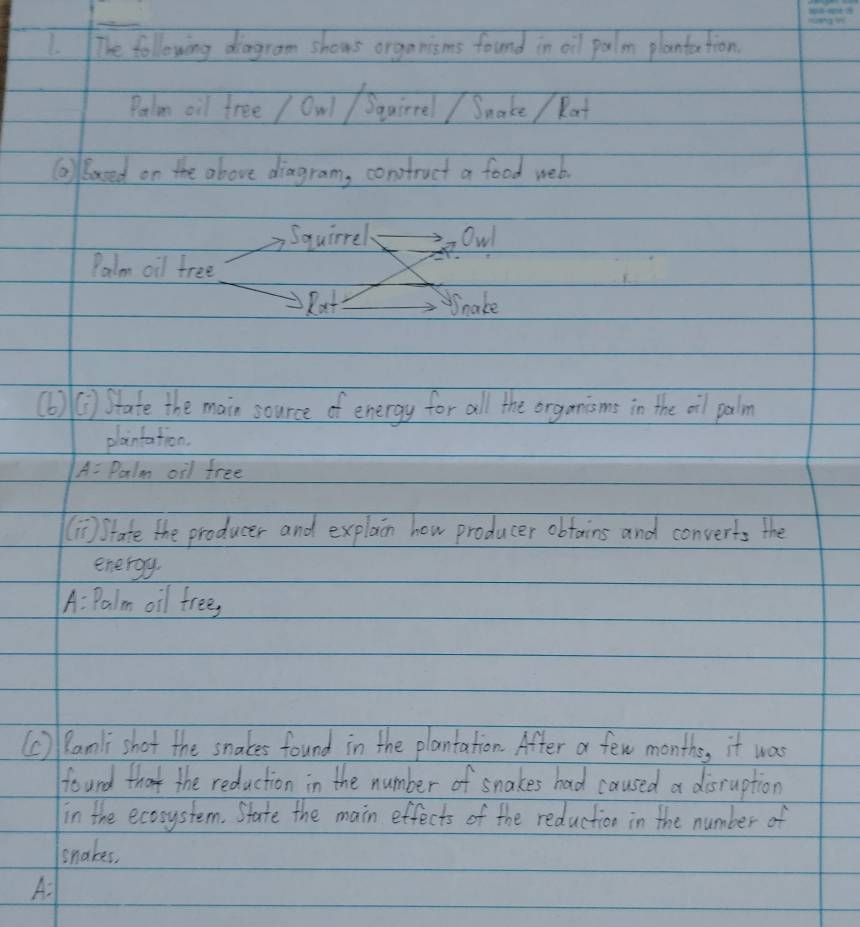 1. The following diagram shows organisms found in oil palm plantation.
Palm oil tree / Owl / Squirrel / Snake / Rat
(a) Based on the above diagram, construct a food web.
Squirrel → Owl
Palm oil tree
Rat → Snake
(b) (i) State the main source of energy for all the organisms in the oil palm
plantation.
A: Palm oil tree
(ii) State the producer and explain how producer obtains and converts the
energy.
A: Palm oil tree,
(c) Ramli shot the snakes found in the plantation. After a few months, it was
found that the reduction in the number of snakes had caused a disruption
in the ecosystem. State the main effects of the reduction in the number of
snakes.
A: